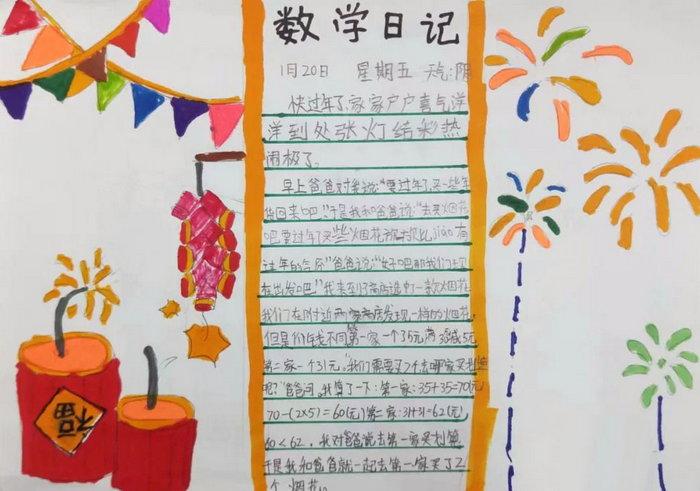 数学日记
1月20日 星期五 天气:阴
快过年了,家家户户喜气洋
洋到处张灯结彩热
闹极了。
早上爸爸对我说:“要过年了,买一些年
货回来吧。”于是我和爸爸说:“去买烟花
吧要过年了买些烟花放比jiào有
过年的气分”爸爸说:“好吧那我们
在出发吧。”我来到商店选中了一款烟花
我们在附近两家商店发现一样的烟花,
但是价钱不同第一家一个35元满30减5元
第二家一个31元。“我们需要买2个去哪家买划算
呢?”爸爸问。我算了一下:第一家:35+35=70(元)
70-(2×5)=60(元)第二家:31+31=62(元)
60<62,我对爸爸说去第一家买划算
于是我和爸爸就一起去第一家买了2
个烟花。
福